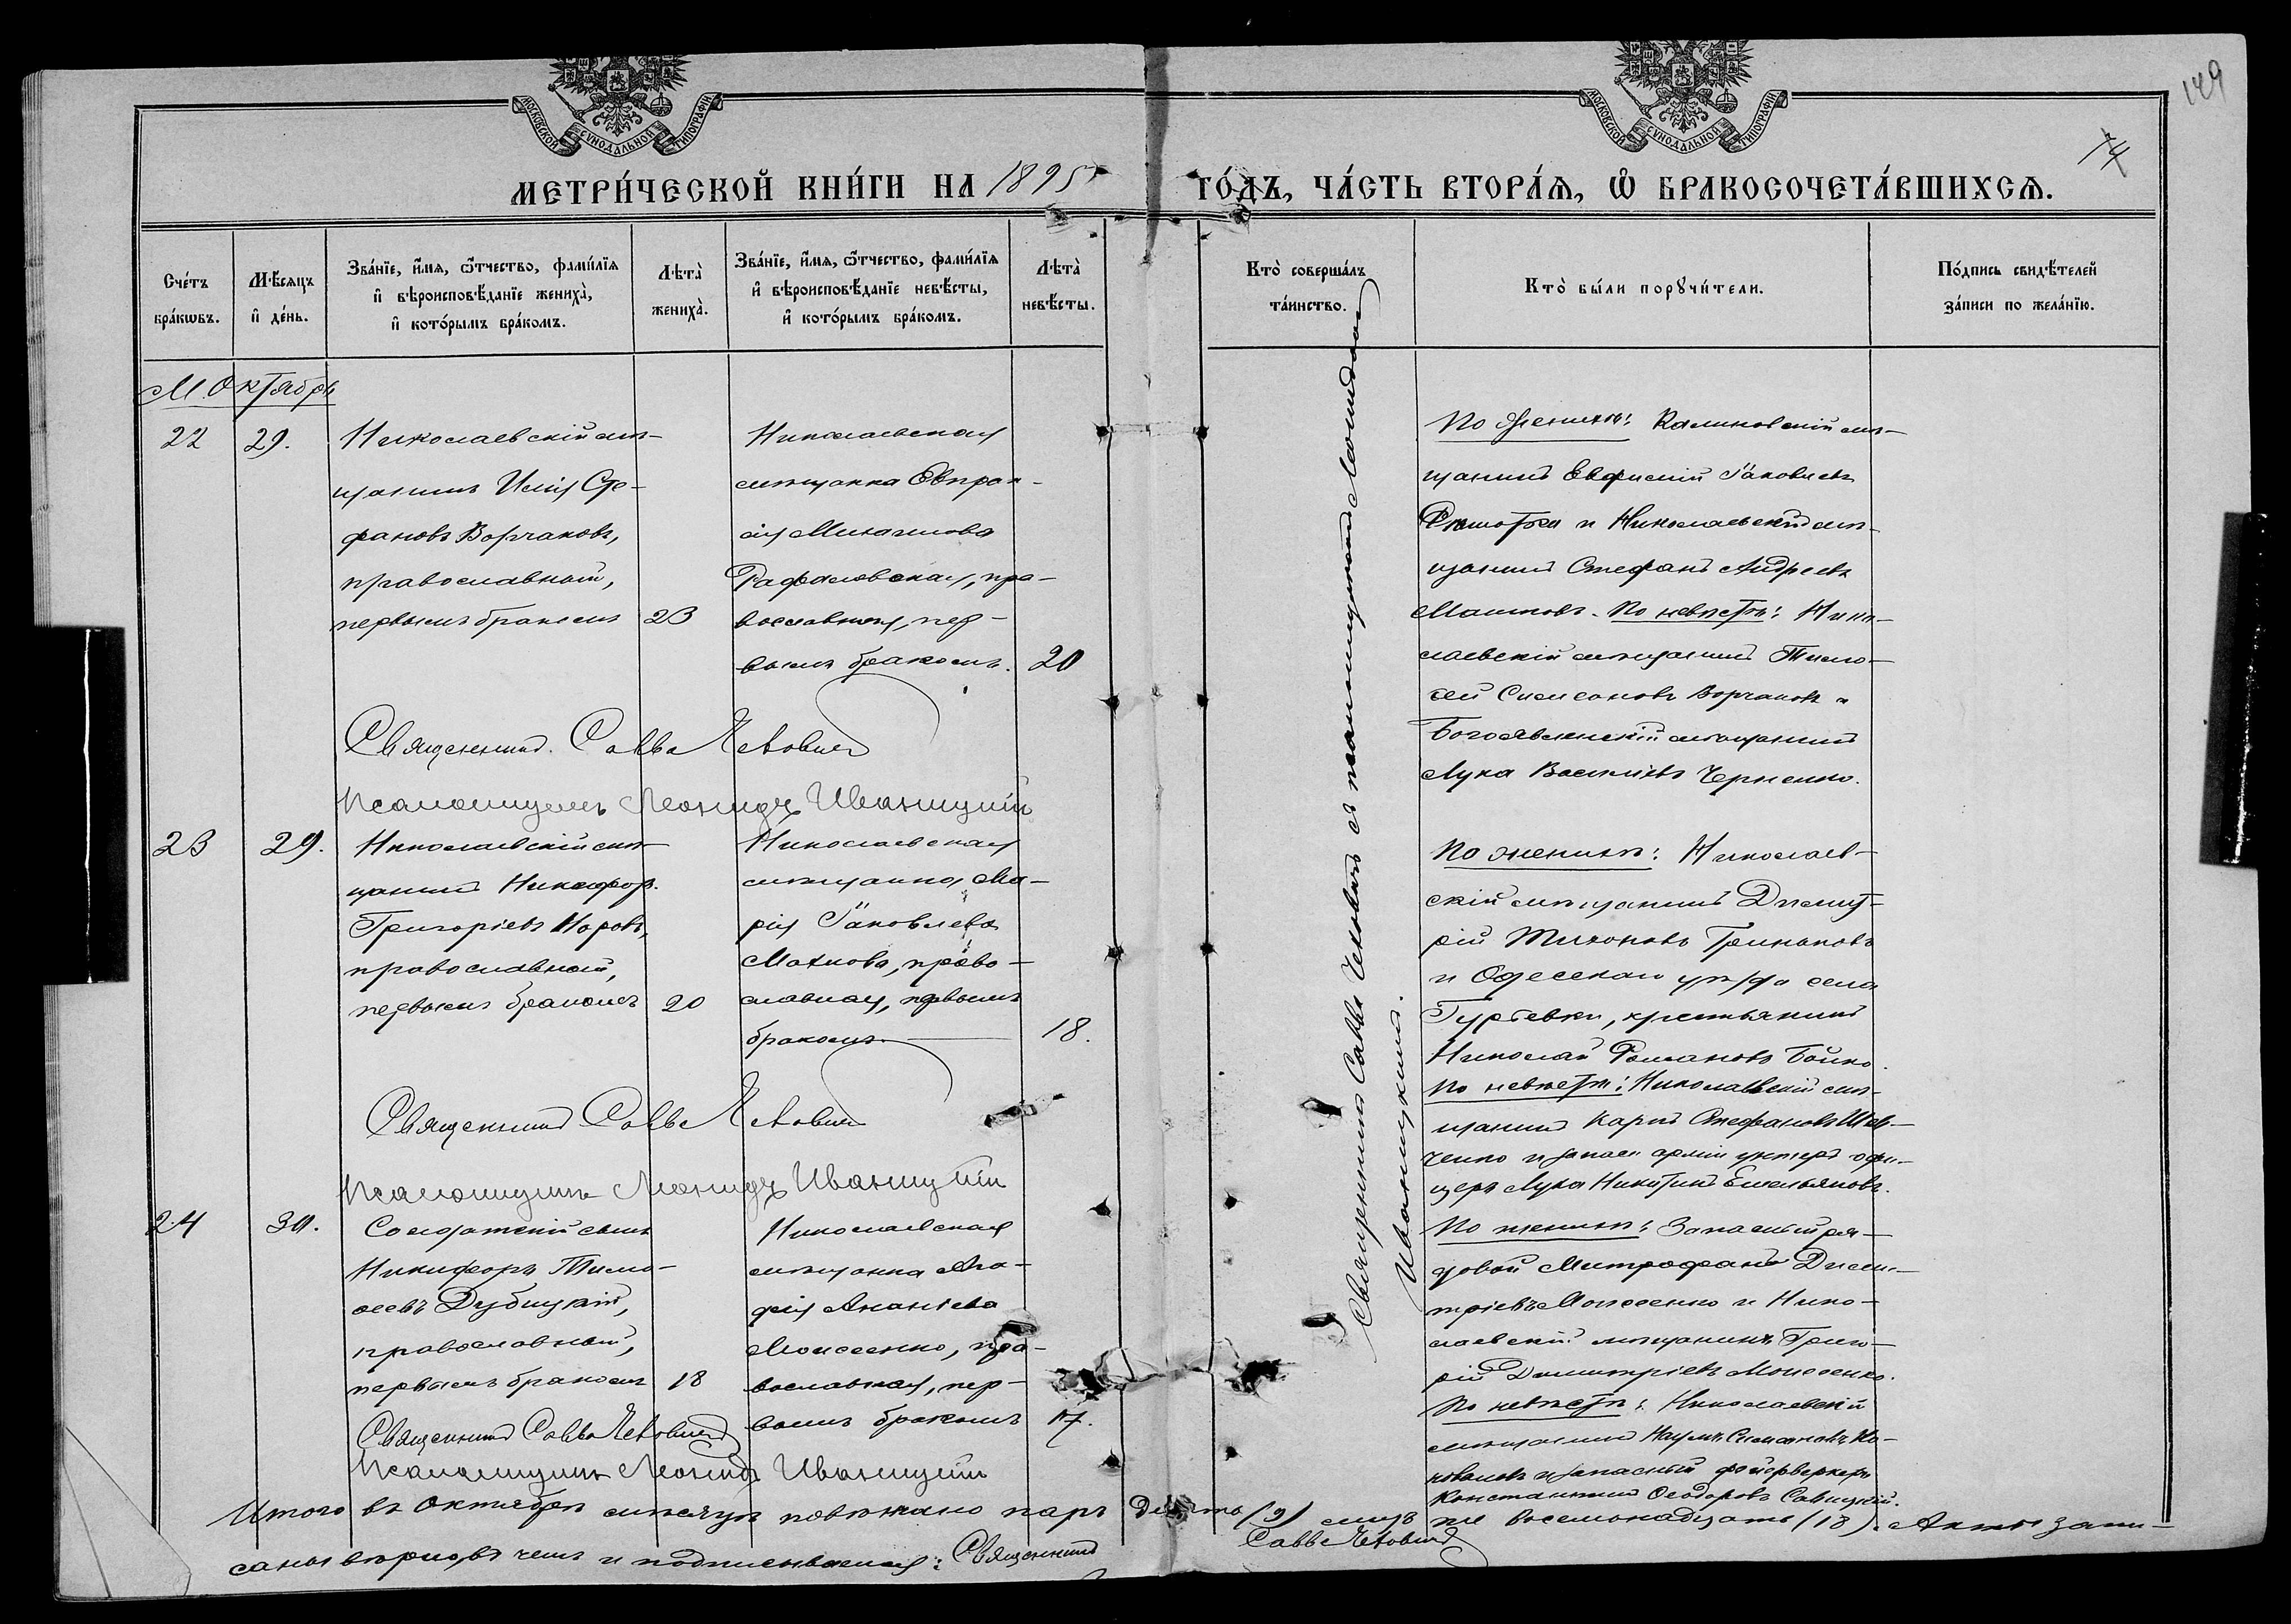 149
МОСКОВСКОЙ СУНОДАЛЬНОЙ ТИПОГРАФІИ
МОСКОВСКОЙ СУНОДАЛЬНОЙ ТИПОГРАФІИ
МЕТРИ́ЧЕСКОЙ КНИ́ГИ НА 1895 ГО́ДЪ, ЧА́СТЬ ВТОРА́Я, Ѡ БРАКОСОЧЕТА́ВШИХСЯ.
Сче́тъ бра́кѡвъ.
Мѣ́сяцъ и де́нь.
Зва́нїе, и́мя, ѻ҆́тчество, фами́лїя
и вѣроисповѣ́данїе жениха̀,
и кото́рымъ бра́комъ.
Лѣта̀ жениха̀.
Зва́нїе, и́мя, ѻ҆́тчество, фами́лїя
и вѣроисповѣ́данїе невѣ́сты,
и кото́рымъ бра́комъ.
Лѣта̀ невѣ́сты.
Кто̀ соверша́лъ та́инство.
Кто̀ бы́ли порꙋчи́тели.
По́дпись свидѣ́телей за́писи по жела́нїю.
М Октябрь
22 29.
Николаевскій мѣ-
щанинъ Илія Сте-
фановъ Ворчаковъ,
православный,
первымъ бракомъ 23
Николаевская
мѣщанка Евпрак-
сія Михаилова
Рафаловская, пра-
вославная, пер-
вымъ бракомъ. 20
Священникъ Савва Чехович
Псаломщикъ Леонидъ Иваницкій
По женихѣ: Калиновскій мѣ-
щанинъ Евфимій Іаковлевъ
и Николаевскій мѣ-
щанинъ Стефанъ Андреевъ
Машковъ. По невѣстѣ: Нико-
лаевскій мѣщанинъ Тимо-
ѳей Симеоновъ Ворчаковъ и
Богоявленскій мѣщанинъ
Лука Васильевъ Черненко.
23 29.
Николаевскій мѣ-
щанинъ Никифор.
Григоріевъ Норовъ,
православный,
первымъ бракомъ 20
Николаевская
мѣщанка Ма-
рія Іаковлева
Махнова, право-
славная, первымъ
бракомъ 18.
Священникъ Савва Чехович
Псаломщикъ Леонидъ Иваницкій
По женихѣ: Николаев-
скій мѣщанинъ Димит-
рій Тихоновъ Гриньковъ
и Одесскаго уѣзда села
Гурьевки, крестьянинъ
Николай Романовъ Бойко.
По невѣстѣ: Николаевскій мѣ-
щанинъ Карпъ Стефановъ Шев-
ченко и запаса арміи унтеръ офи-
церъ Лука Никитинъ Емельяновъ.
24 30.
Солдатскій сынъ
Никифоръ Тимо-
ѳеевъ Дубицкій,
православный,
первымъ бракомъ 18
Николаевская
мѣщанка Ага-
фія Ананіева
Моисеенко, пра-
вославная, пер-
вымъ бракомъ 17.
Священникъ Савва Чехович
Псаломщикъ Леонидъ Иваницкій
По женихѣ: Запасный ря-
довой Митрофанъ Дими-
тріевъ Моисеенко и Нико-
лаевскій мѣщанинъ Григо-
рій Димитріевъ Моисеенко.
По невѣстѣ: Николаевскій
мѣщанинъ Наумъ Симоновъ Ко-
новаловъ и запасный фейерверкеръ
Константинъ Ѳеодоровъ Савицкій.
Священникъ Савва Чеховичъ съ псаломщикомъ Леонидомъ
Иваницкимъ.
Итого въ Октябрѣ мѣсяцѣ повѣнчано паръ Девять (9) лицъ же восемьнадцать (18). Акты запи-
саны вѣрно, въ чемъ и подписываемся: Священникъ Савва Чехович